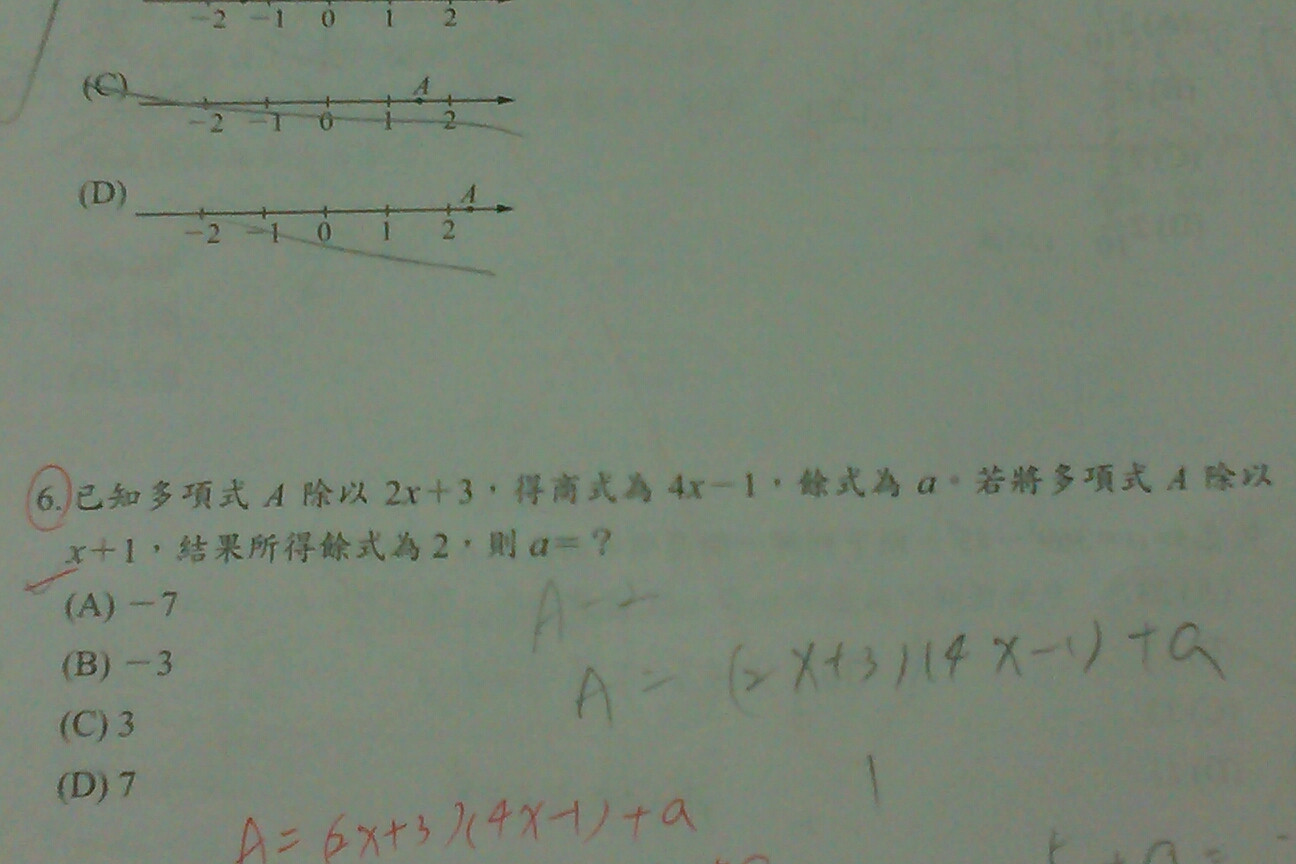 −2 −1 0 1 2
(C) A
−2 −1 0 1 2
(D) A
−2 −1 0 1 2
6. 已知多項式 A 除以 2x+3，得商式為 4x−1，餘式為 a。若將多項式 A 除以
x+1，結果所得餘式為 2，則 a=？
(A) −7
(B) −3
(C) 3
(D) 7
A−2
A = (2x+3)(4x−1)+a
A=(2x+3)(4x−1)+a